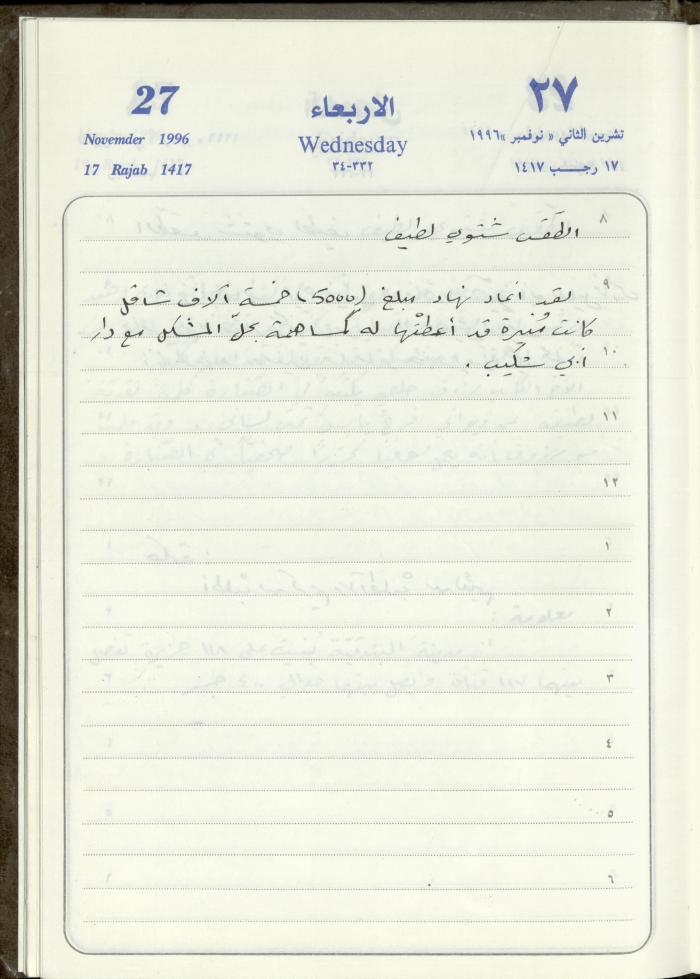 27
الاربعاء
٢٧
Novemder 1996
Wednesday
تشرين الثاني « نوفمبر »١٩٩٦
17 Rajab 1417
٣٣٢-٣٤
١٧ رجب ١٤١٧
٨ الطقس شتوي لطيف
٩
لقد أعاد نهاد مبلغ (5000) خمسة آلاف شاقل
كانت مُنيرة قد أعطتْها له كمساهمة بحلّ المشكل مع دار
١٠ أبي شكيب .
١١
١٢
١
٢
٣
٤
٥
٦